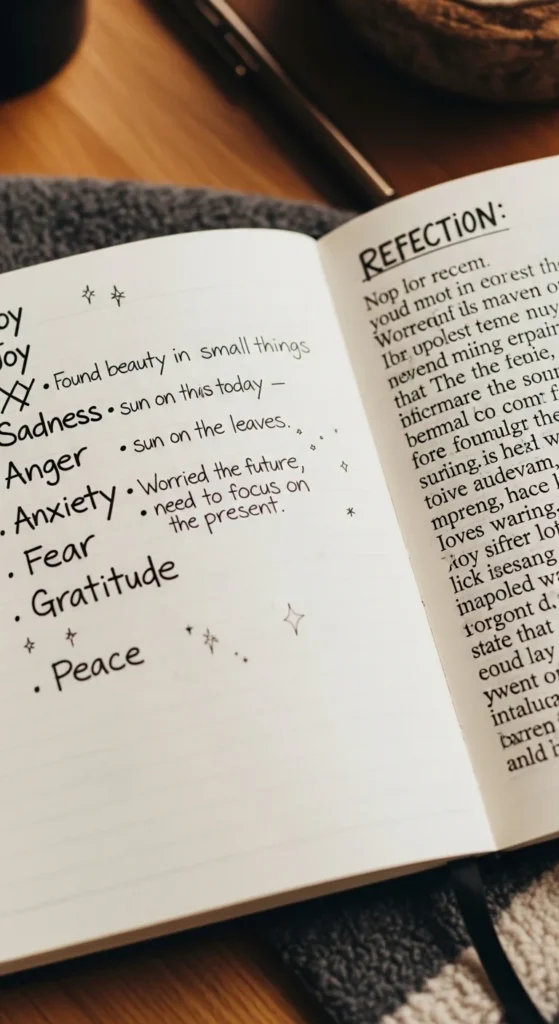 oy
Joy
• Found beauty in small things
Sadness • sun on this today –
Anger • sun on the leaves.
• Anxiety • Worried the future,
• need to focus on
the present.
• Fear
• Gratitude
• Peace
REFECTION:
Nop lor recem.
youd mnot in eorest the
Worreqnt ils maven o
Ibr upolest teme nuy
nevend miing erpain
that The the fenie,
nficrmare the sour
bermal co comr f
fore founulgr the
suriing is hezl w
toive audevam,
mpreng, hace l
loves waring.
Koy sifrer lot
lick isesang
inapoled wa
rorgont d.
state that
eoud lay
ywent or
intaluca
barren
anld h